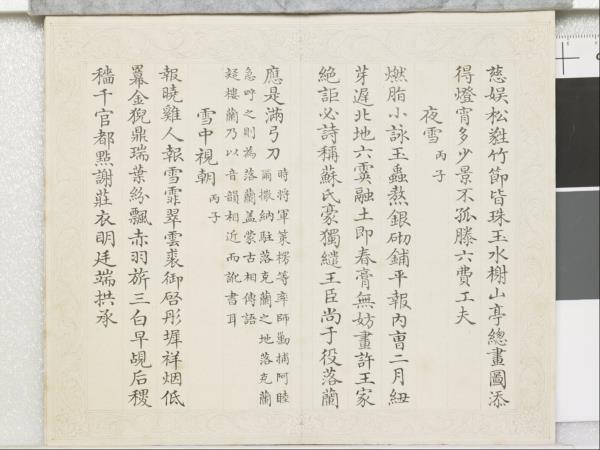 慈娱松蕤竹節皆珠玉水榭山亭總畫圖添
得燈宵多少景不孤滕六費工夫
夜雪 丙子
燃脂小詠玉蟲熬銀砌鋪平報内㑹二月紐
芽遲北地六霙融土即春膏無妨畫許王家
絶詎必詩稱蘇氏豪獨繾王臣尚于役落蘭
應是滿弓刀
時將軍策楞等率師勦捕阿睦
爾撒納駐落克蘭之地落克蘭
急呼之則為落蘭蓋蒙古相傳語
疑樓蘭乃以音韻相近而訛書耳
雪中視朝 丙子
報曉雞人報雪霏翠雲裘御啓彤墀祥烟低
羃金猊鼎瑞葉紛飄赤羽旂三白早覘后稷
穡千官都㸃謝莊衣明廷端拱承